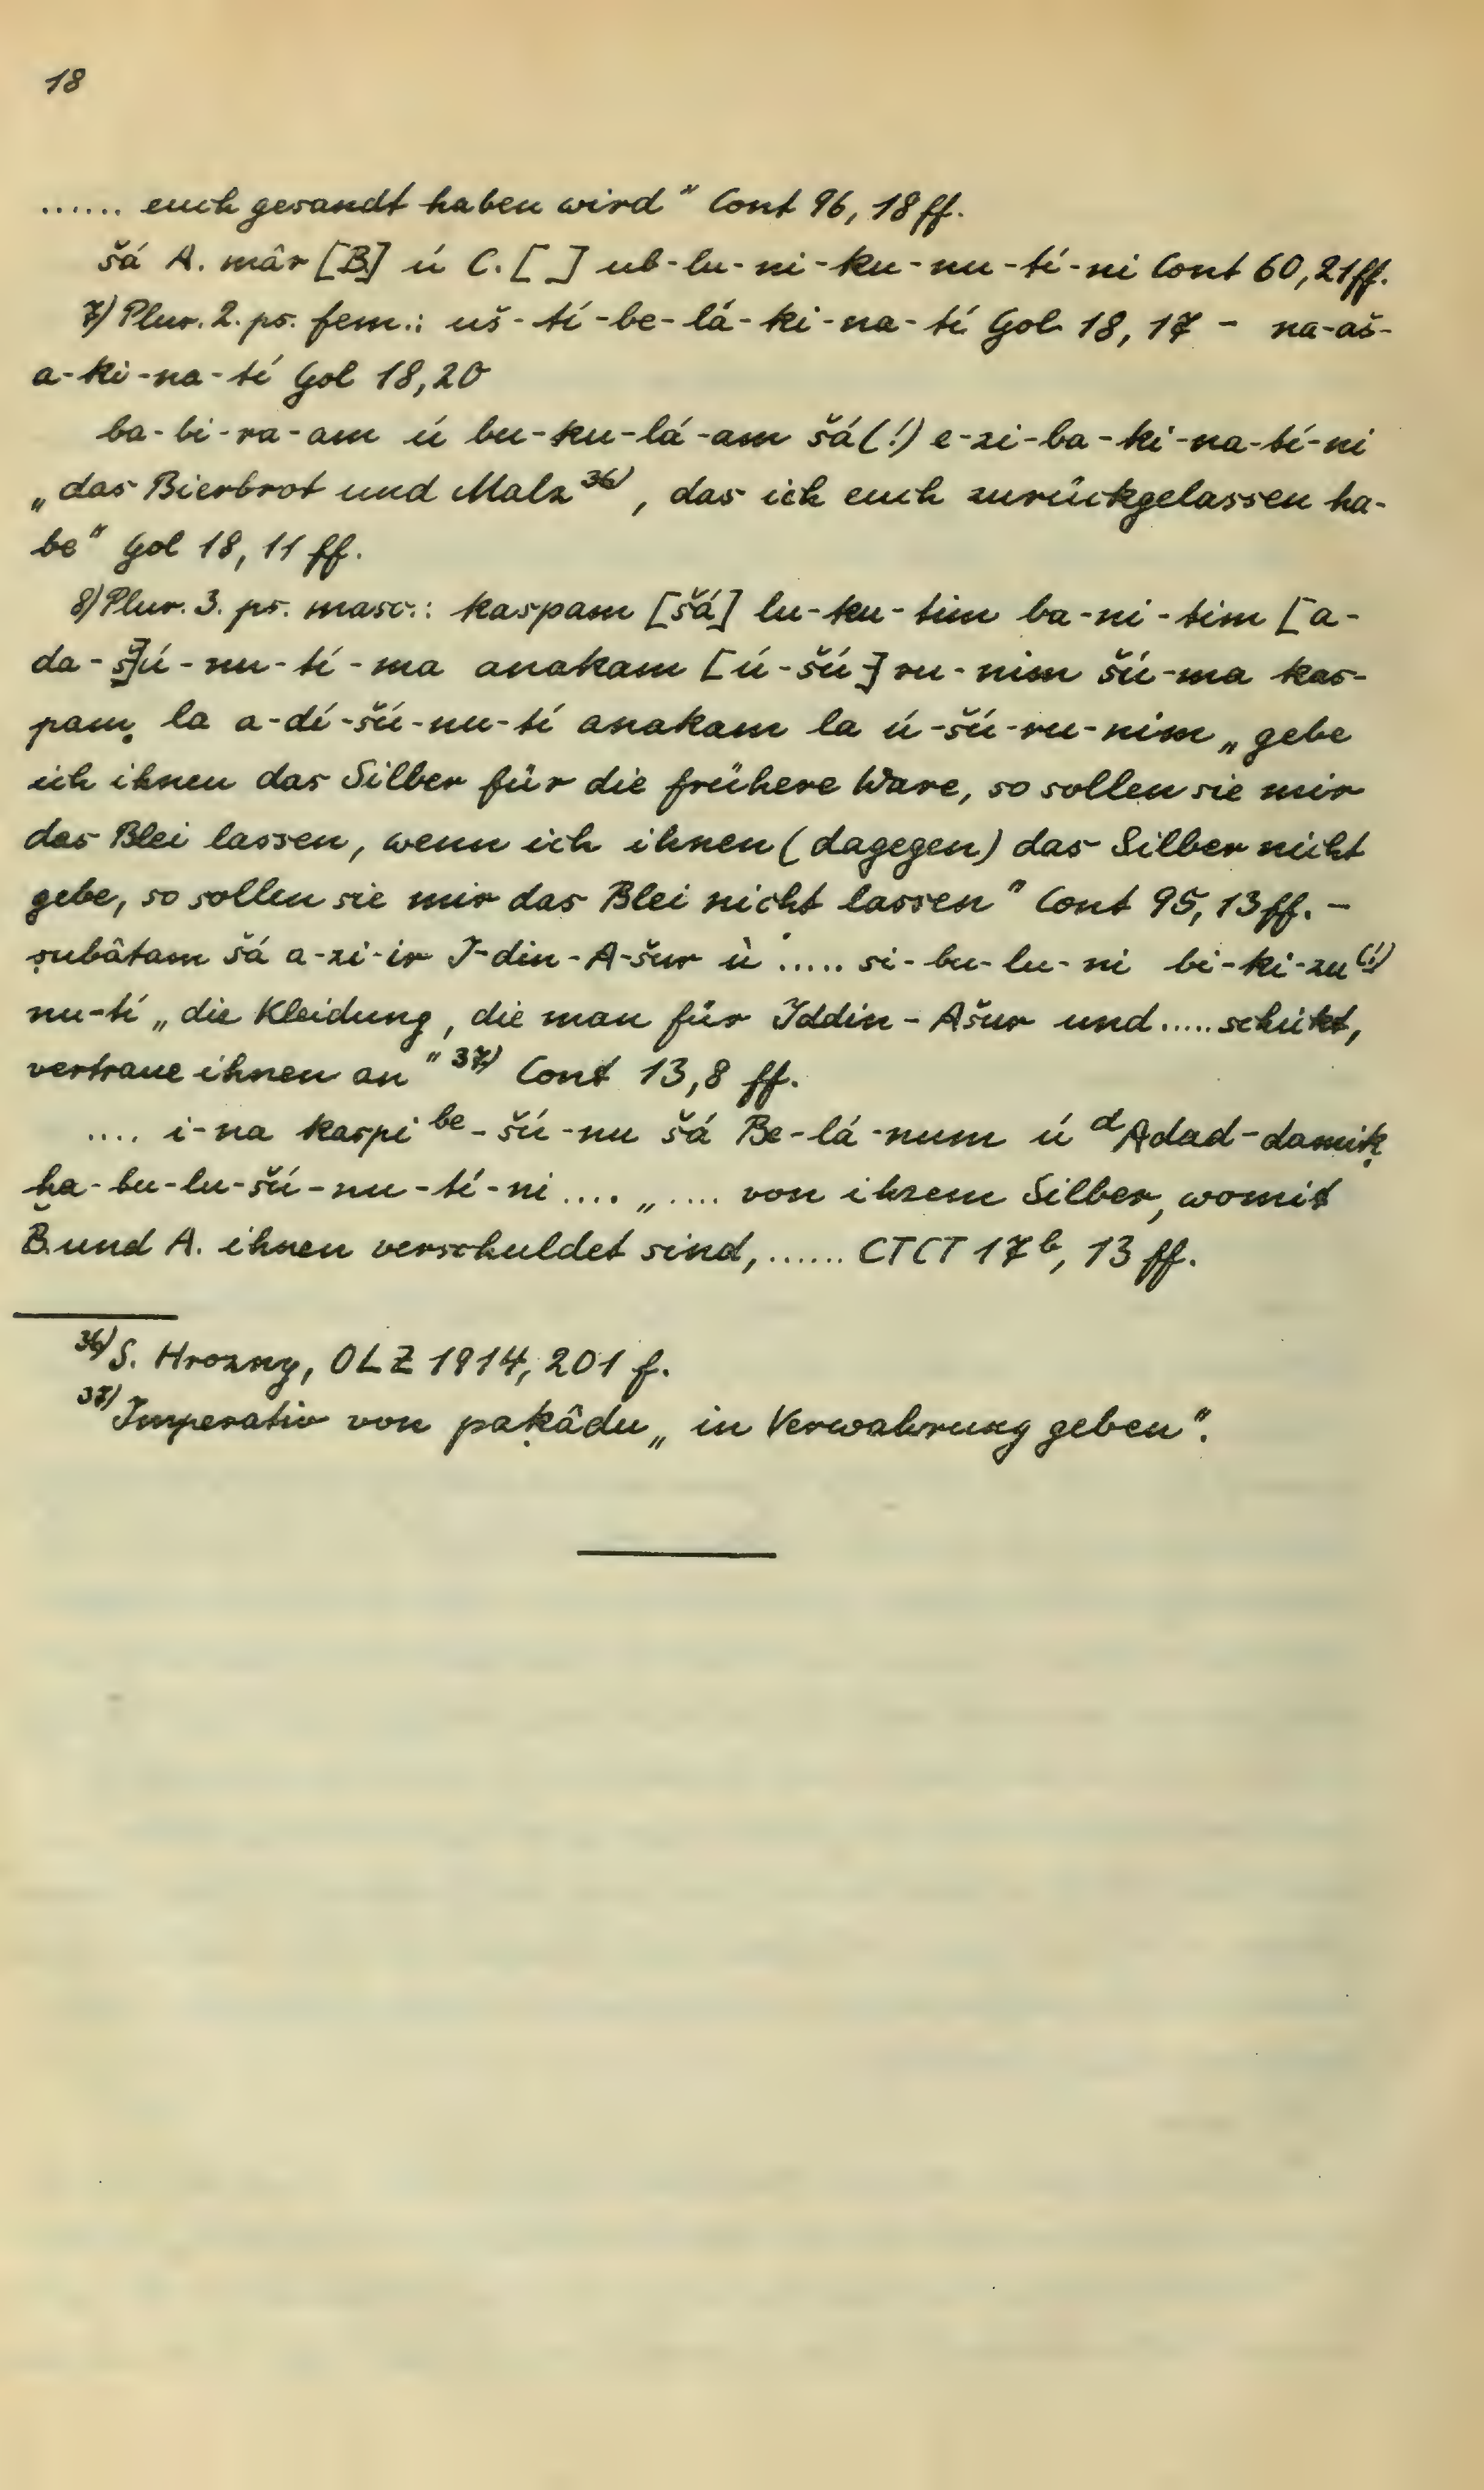 18
...... euch gesandt haben wird" Cont 96, 18 ff.
šá A. mâr [B.] ú C. [ ] ub-lu-ni-ku-nu-tí-ni Cont 60, 21 ff.
7) Plur. 2. ps. fem.: uš-tí-be-lá-ki-na-tí Gol 18, 17 - na-aš-
a-ki-na-tí Gol 18,20
ba-bi-ra-am ú bu-ku-lá-am šá(!) e-zi-ba-ki-na-tí-ni
„das Bierbrot und Malz 36) , das ich euch zurückgelassen ha-
be" Gol 18, 11 ff.
8) Plur. 3. ps. masc.: kaspam [šá] lu-ku-tim ba-ni-tim [a-
da-š]ú-nu-tí-ma anakam [ú-šú-]ru-nim šú-ma kas-
pam la a-dí-šú-nu-tí anakam la ú-šú-ru-nim „gebe
ich ihnen das Silber für die frühere Ware, so sollen sie mir
das Blei lassen, wenn ich ihnen (dagegen) das Silber nicht
gebe, so sollen sie mir das Blei nicht lassen" Cont 95, 13 ff. -
ṣubâtam šá a-zi-ir I-din-A-šur ù ..... si-bu-lu-ni bi-ki-zu(!)
nu-tí „die Kleidung, die man für Iddin-Ašur und ..... schickt,
vertraue ihnen an" 37) Cont 13,8 ff.
.... i-na kaspi be-šú-nu šá Be-lá-num ú dAdad-damiḳ
ḫa-bu-lu-šú-nu-tí-ni .... „ .... von ihrem Silber, womit
B. und A. ihnen verschuldet sind, ...... CTCT 17b, 13 ff.
36) S. Hrozny, OLZ 1914, 201 f.
37) Imperativ von paḳâdu „in Verwahrung geben".